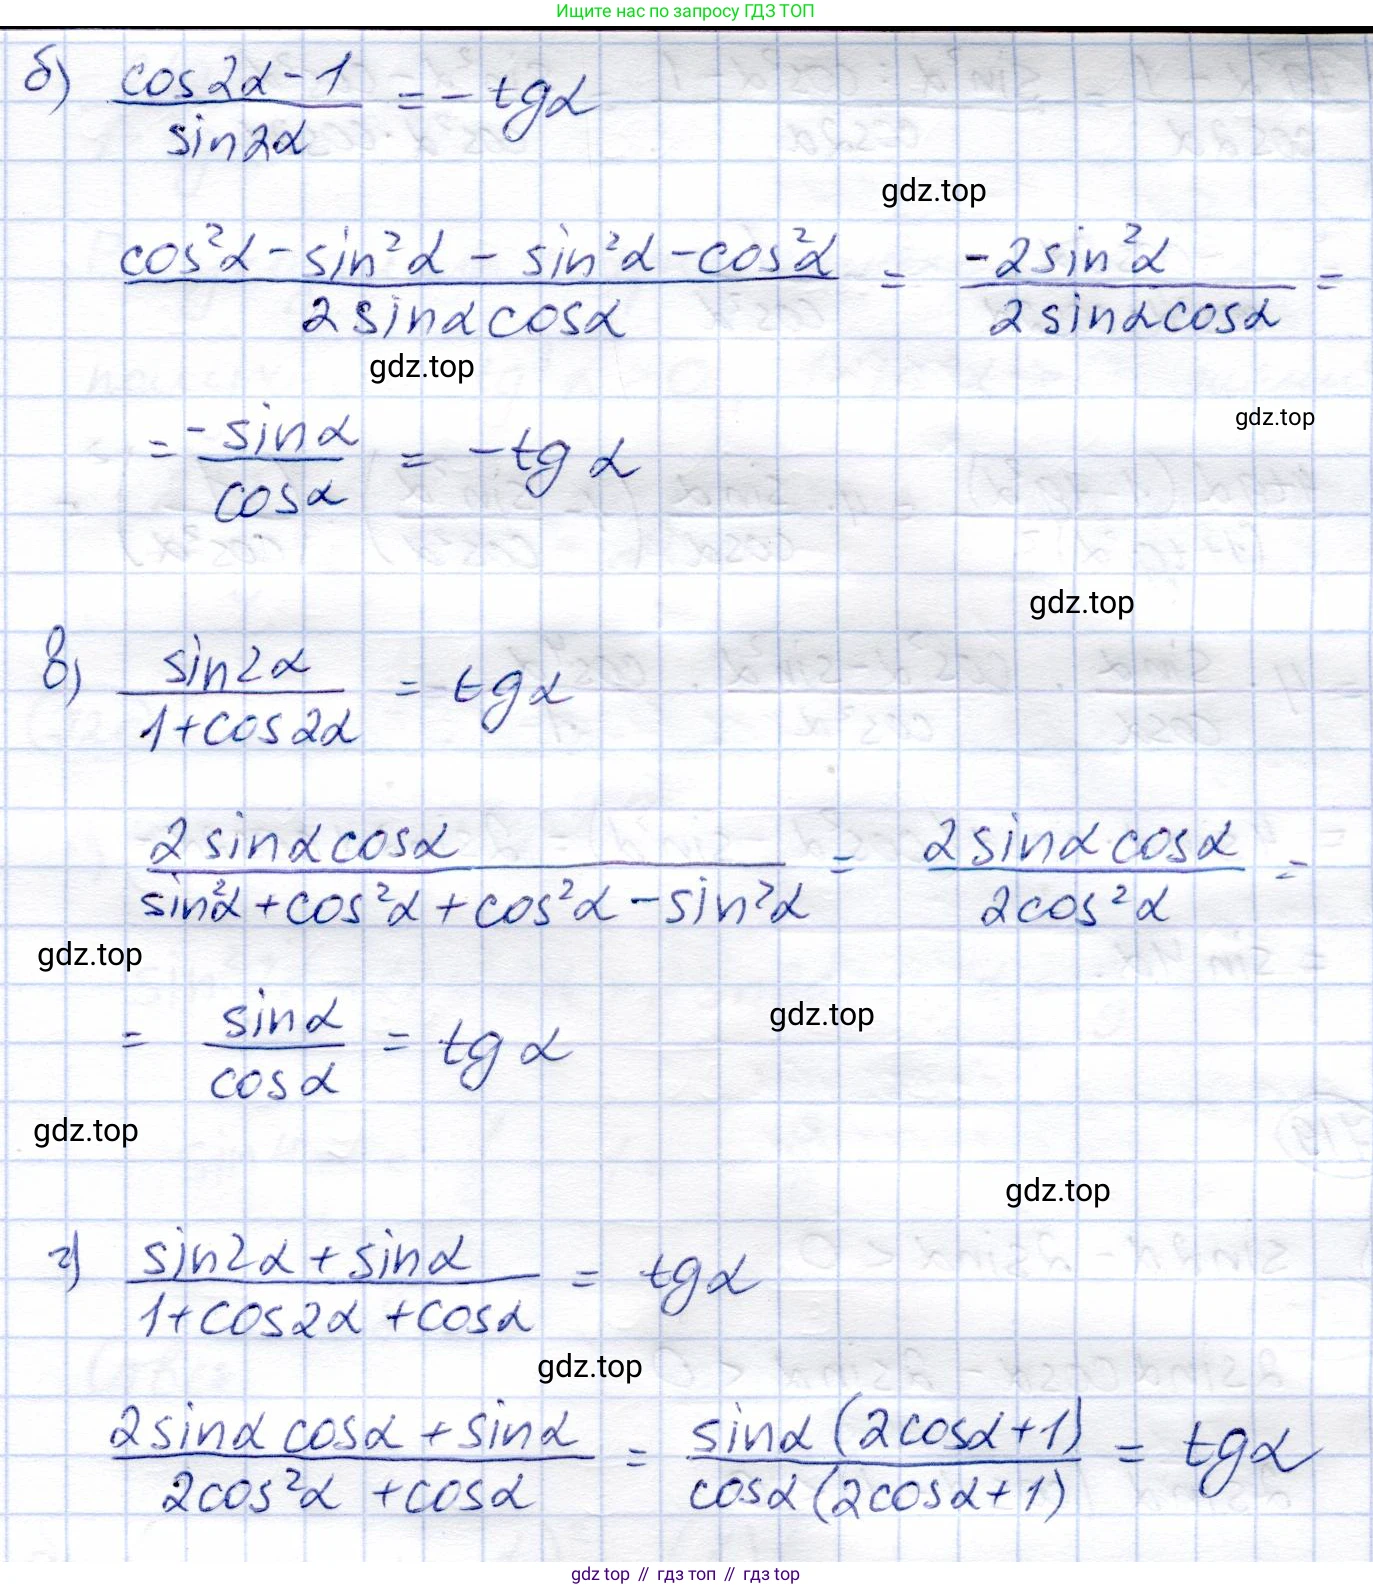 Ищите нас по запросу ГДЗ ТОП
б) (cos2α - 1)/(sin2α) = - tgα
gdz.top
(cos²α - sin²α - sin²α - cos²α)/(2sinαcosα) = (-2sin²α)/(2sinαcosα) =
gdz.top
gdz.top
= (-sinα)/(cosα) = -tgα
gdz.top
в) (sin2α)/(1+cos2α) = tgα
(2sinαcosα)/(sin²α + cos²α + cos²α - sin²α) = (2sinαcosα)/(2cos²α) =
gdz.top
gdz.top
= (sinα)/(cosα) = tgα
gdz.top
gdz.top
г) (sin2α + sinα)/(1+cos2α + cosα) = tgα
gdz.top
(2sinαcosα + sinα)/(2cos²α + cosα) = (sinα(2cosα+1))/(cosα(2cosα+1)) = tgα
gdz top // гдз топ // гдз top